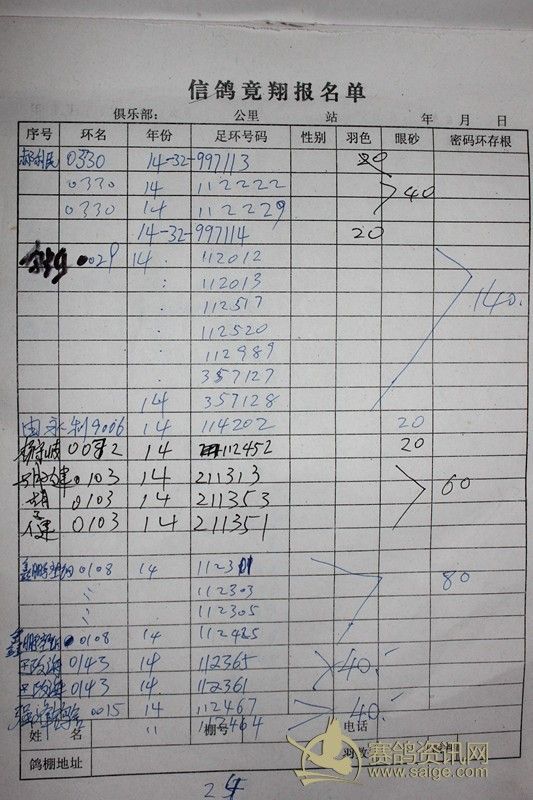 信鸽竞翔报名单
俱乐部： 公里 站 年 月 日
序号 环名 年份 足环号码 性别 羽色 眼砂 密码环存根
0330 14-32-997113 20
0330 14 112222 40
0330 14 112229
14-32-997114 20
0029 14 . 112012
: 112013
. 112517 140.
. 112520
. 112989
. 357127
14 357128
9006 14 114202 20
14 112452 20
0103 14 211313
0103 14 211353 60
0103 14 211351
0108 14 80
〃 112303
〃 112305
0108 14 112485
0143 14 112365 40.
0143 14 112361
0015 14 112467 40.
姓 名 〃 棚号 电话
鸽棚地址 羽数
赛鸽资讯网
www.saige.com
24